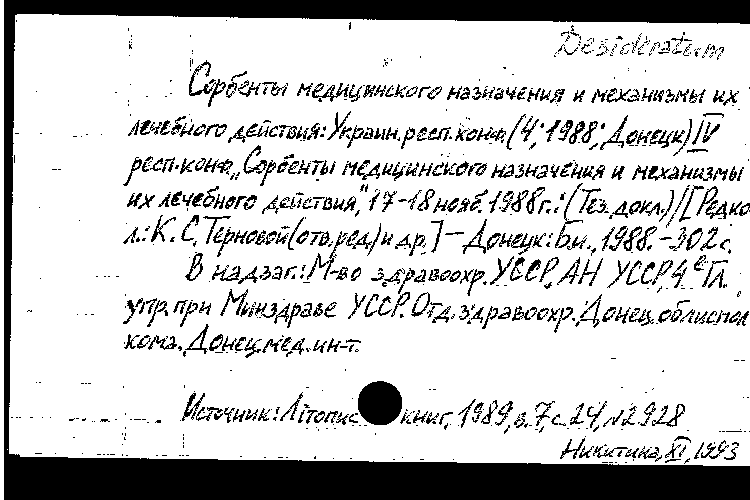 Desideratum
Сорбенты медицинского назначения и механизмы их
лечебного действия: Украин. респ. конф. (4; 1988; Донецк) IV
респ. конф. „Сорбенты медицинского назначения и механизмы
их лечебного действия," 17-18 нояб. 1988 г.: (Тез. докл.) / [Редко
л.: К. С. Терновой (отв. ред.) и др.] — Донецк: Б.и., 1988. - 302 с.
В надзаг.: М-во здравоохр. УССР, АН УССР, 4е Гл.
упр. при Минздраве УССР. Отд. здравоохр. Донец. облиспол
кома. Донец. мед. ин-т.
Источник: Літопис книг, 1989, в. 7, с. 24, №2928
Никитина, XI, 1993